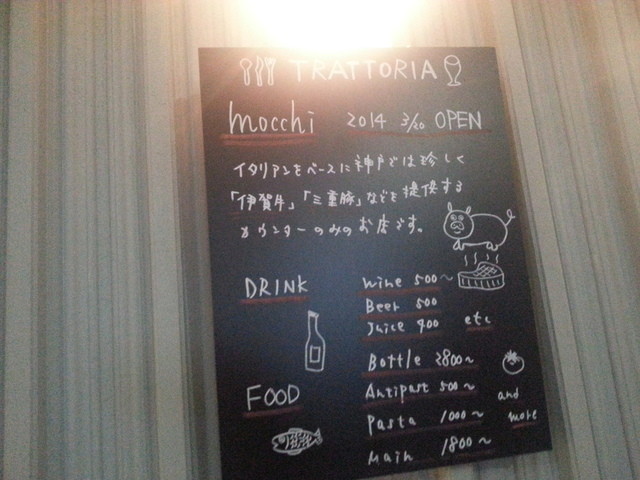 TRATTORIA
mocchi 2014 3/20 OPEN
イタリアンをベースに神戸では珍しく
「伊賀牛」「三重豚」などを提供する
カウンターのみのお店です。
DRINK
wine 500~
Beer 500
Juice 400 etc
Bottle 2800~
FOOD
Antipast 500~
Pasta 1000~
and more
Main 1800~